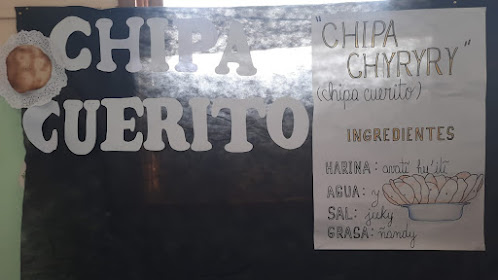 CHIPA
CUERITO
"CHIPA
CHYRYRY"
(chipa cuerito)
INGREDIENTES
HARINA: avati ku'iti
AGUA: y
SAL: juky
GRASA: ñandy